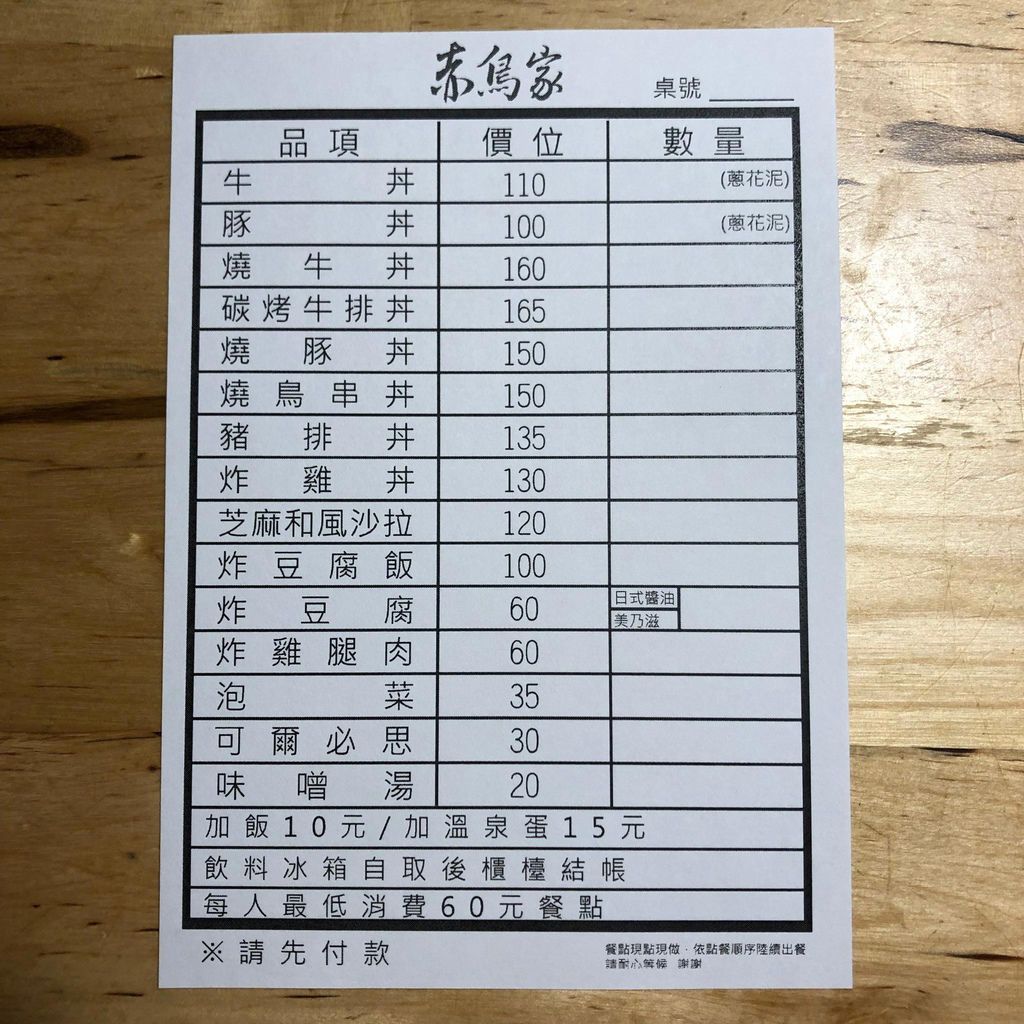 赤鳥家
桌號
品項 價位 數量
牛丼 110 (蔥花泥)
豚丼 100 (蔥花泥)
燒牛丼 160
碳烤牛排丼 165
燒豚丼 150
燒鳥串丼 150
豬排丼 135
炸雞丼 130
芝麻和風沙拉 120
炸豆腐飯 100
炸豆腐 60 日式醬油
美乃滋
炸雞腿肉 60
泡菜 35
可爾必思 30
味噌湯 20
加飯10元/加溫泉蛋15元
飲料冰箱自取後櫃檯結帳
每人最低消費60元餐點
※請先付款
餐點現點現做·依點餐順序陸續出餐
請耐心等候 謝謝